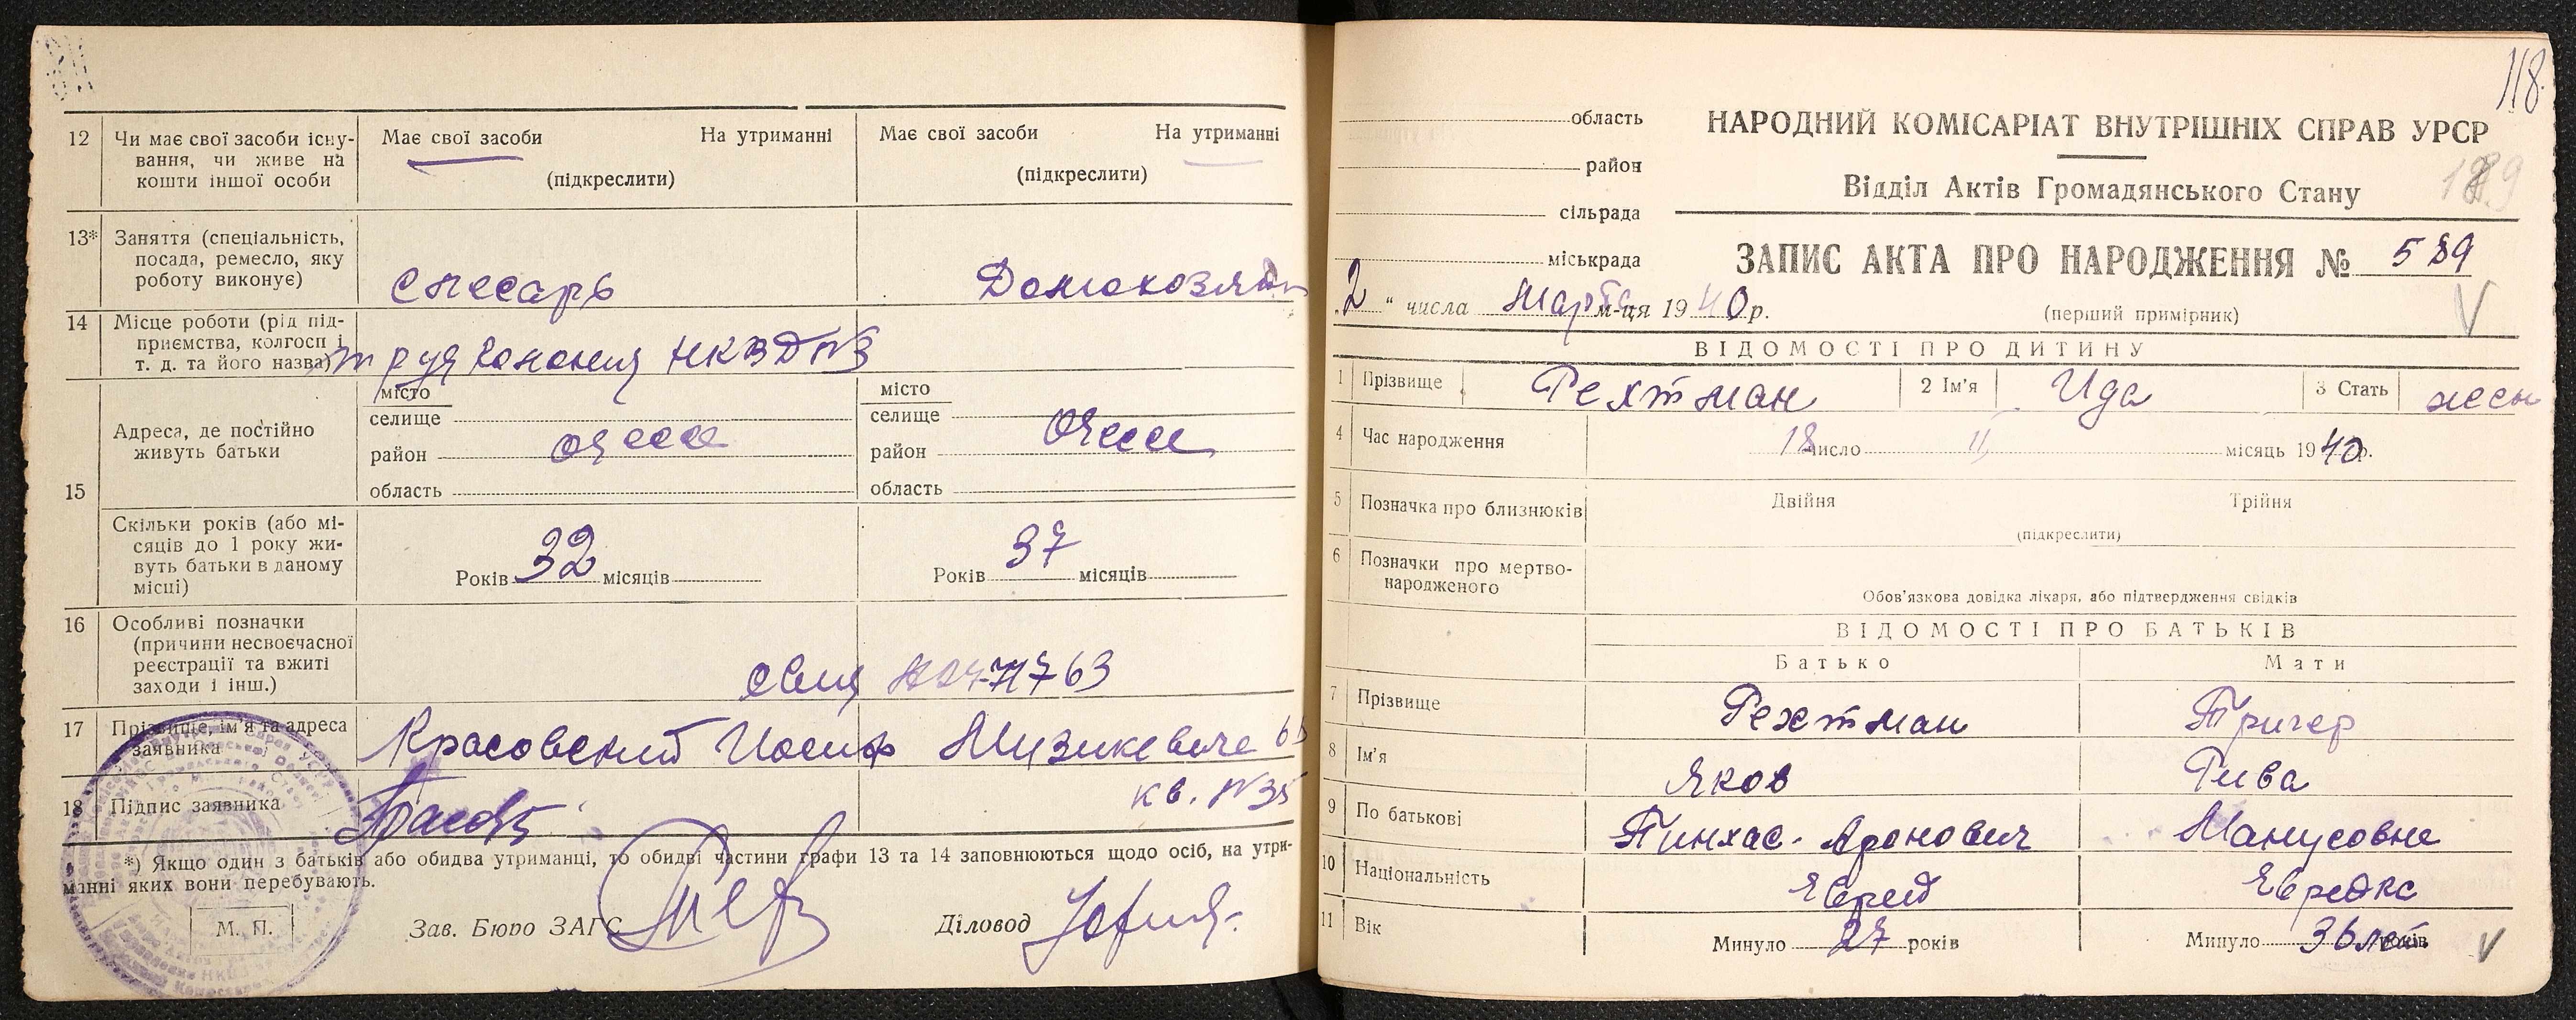 12 Чи має свої засоби існування, чи живе на кошти іншої особи
Має свої засоби На утриманні
(підкреслити)
Має свої засоби На утриманні
(підкреслити)
13* Заняття (спеціальність, посада, ремесло, яку роботу виконує)
Слесарь
Домохозяй
14 Місце роботи (рід підприємства, колгосп і т. д. та його назва)
труд колония НКВД №3
15 Адреса, де постійно живуть батьки
місто
селище
район Одесса
область
місто
селище
район Одесса
область
Скільки років (або місяців до 1 року живуть батьки в даному місці)
Років 32 місяців
Років 37 місяців
16 Особливі позначки (причини несвоєчасної реєстрації та вжиті заходи і інш.)
17 Прізвище, ім'я та адреса заявника
Красовский Иосиф
кв. №35
18 Підпис заявника
*) Якщо один з батьків або обидва утриманці, то обидві частини графи 13 та 14 заповнюються щодо осіб, на утри-
манні яких вони перебувають.
М. П.
Зав. Бюро ЗАГС
Діловод
118
область
район
сільрада
міськрада
НАРОДНИЙ КОМІСАРІАТ ВНУТРІШНІХ СПРАВ УРСР
Відділ Актів Громадянського Стану
ЗАПИС АКТА ПРО НАРОДЖЕННЯ № 589
„2" числа Марта м-ця 1940 р.
(перший примірник)
ВІДОМОСТІ ПРО ДИТИНУ
1 Прізвище Рехтман 2 Ім'я Ида 3 Стать жен
4 Час народження 18 число II місяць 1940 р.
5 Позначка про близнюків Двійня Трійня
(підкреслити)
6 Позначки про мертвонародженого
Обов'язкова довідка лікаря, або підтвердження свідків
ВІДОМОСТІ ПРО БАТЬКІВ
Батько Мати
7 Прізвище Рехтман Тричер
8 Ім'я Яков Рива
9 По батькові Пинхас-Аронович Манусовна
10 Національність Еврей Еврейка
11 Вік Минуло 37 років Минуло 36 лет років